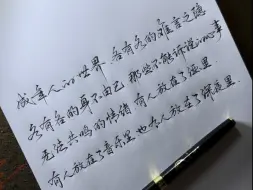 成年人的世界 各有各的难言之隐
各有各的身不由己 那些不能诉说的事
无法共鸣的情绪 有人放在了酒里
有人放在了音乐里 也有人放在了深夜里